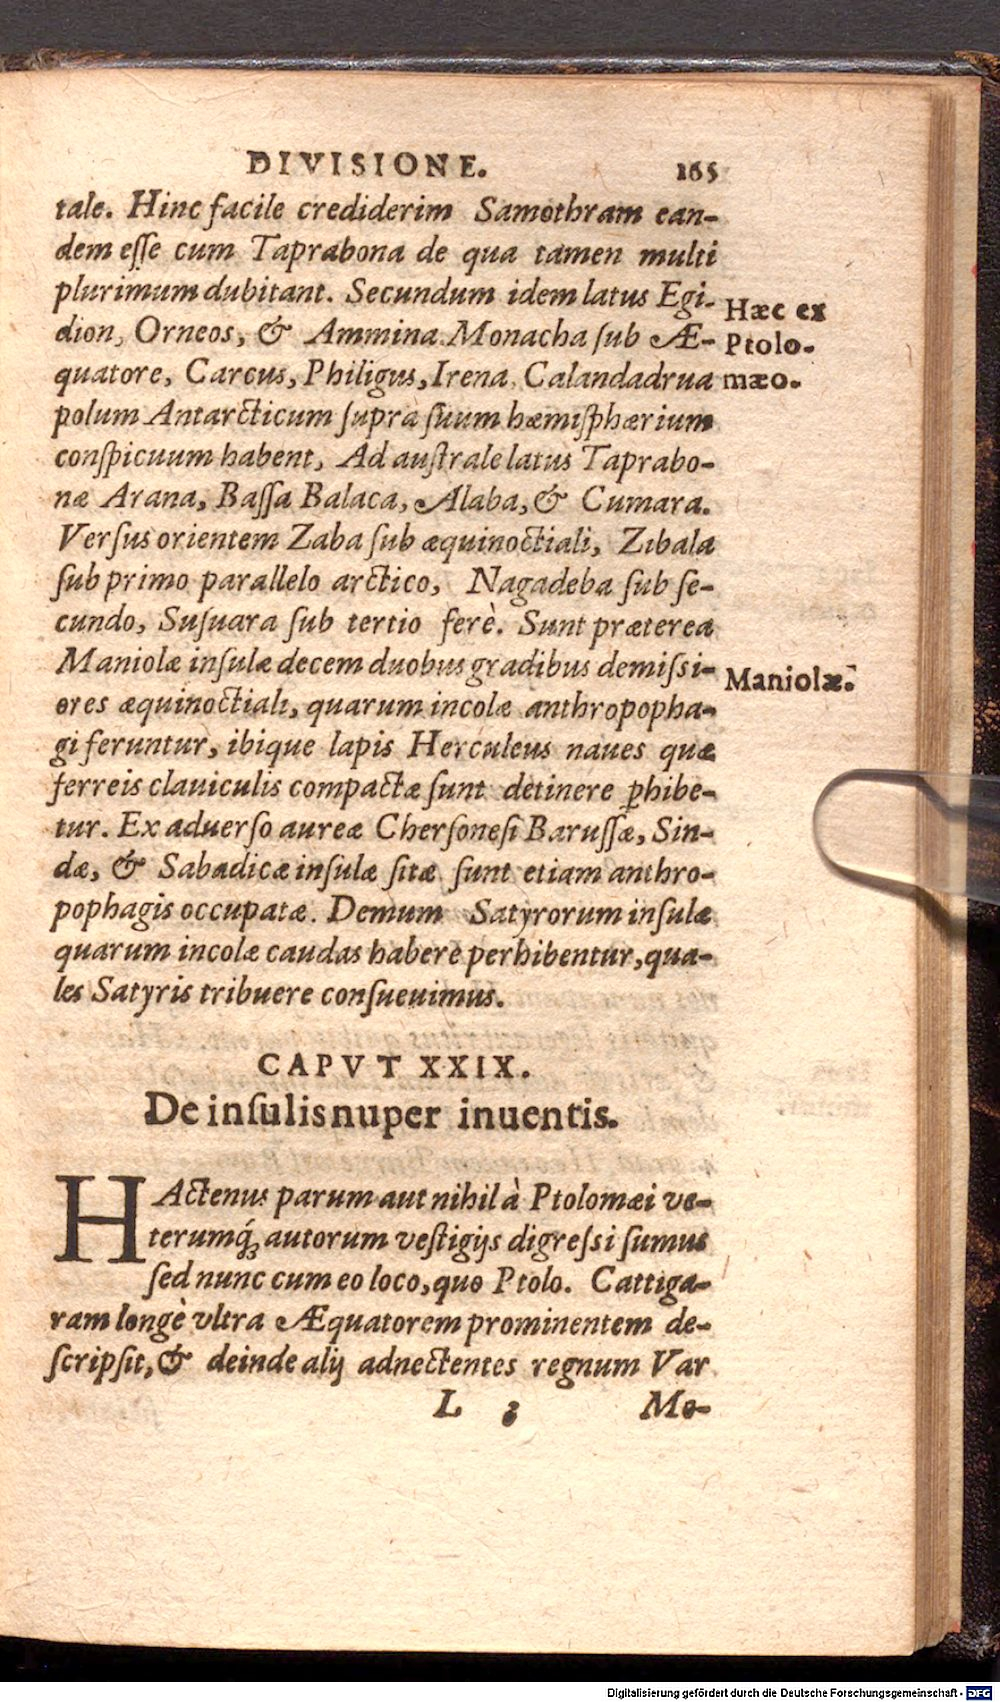 DIVISIONE. 165
tale. Hinc facile crediderim Samothram ean-
dem eſſe cum Taprabona de qua tamen multi
plurimum dubitant. Secundum idem latus Egi-
dion, Orneos, & Ammina Monacha ſub Æ-
quatore, Carcus, Philigus, Irena, Calandadrua
polum Antarcticum ſupra ſuum hæmiſphærium
conſpicuum habent, Ad auſtrale latus Taprabo-
næ Arana, Baſſa Balaca, Alaba, & Cumara.
Verſus orientem Zaba ſub æquinoctiali, Zibala
ſub primo parallelo arctico, Nagadeba ſub ſe-
cundo, Suſuara ſub tertio ferè. Sunt præterea
Maniolæ inſulæ decem duobus gradibus demiſsi-
ores æquinoctiali, quarum incolæ anthropopha-
gi feruntur, ibique lapis Herculeus naues quæ
ferreis clauiculis compactæ ſunt detinere ꝑhibe-
tur. Ex aduerſo aureæ Cherſoneſi Baruſſæ, Sin-
dæ, & Sabadicæ inſulæ ſitæ ſunt etiam anthro-
pophagis occupatæ. Demum Satyrorum inſulæ
quarum incolæ caudas habere perhibentur, qua-
les Satyris tribuere conſueuimus.
Hæc ex
Ptolo-
mæo.
Maniolæ.
CAPVT XXIX.
De inſulis nuper inuentis.
HActenus parum aut nihil à Ptolomæi ve-
terumq́ꝫ autorum veſtigijs digreſsi ſumus
ſed nunc cum eo loco, quo Ptolo. Cattiga-
ram longè vltra Æquatorem prominentem de-
ſcripſit, & deinde alij adnectentes regnum Var
L 3 Mo-
Digitalisierung gefördert durch die Deutsche Forschungsgemeinschaft - DFG